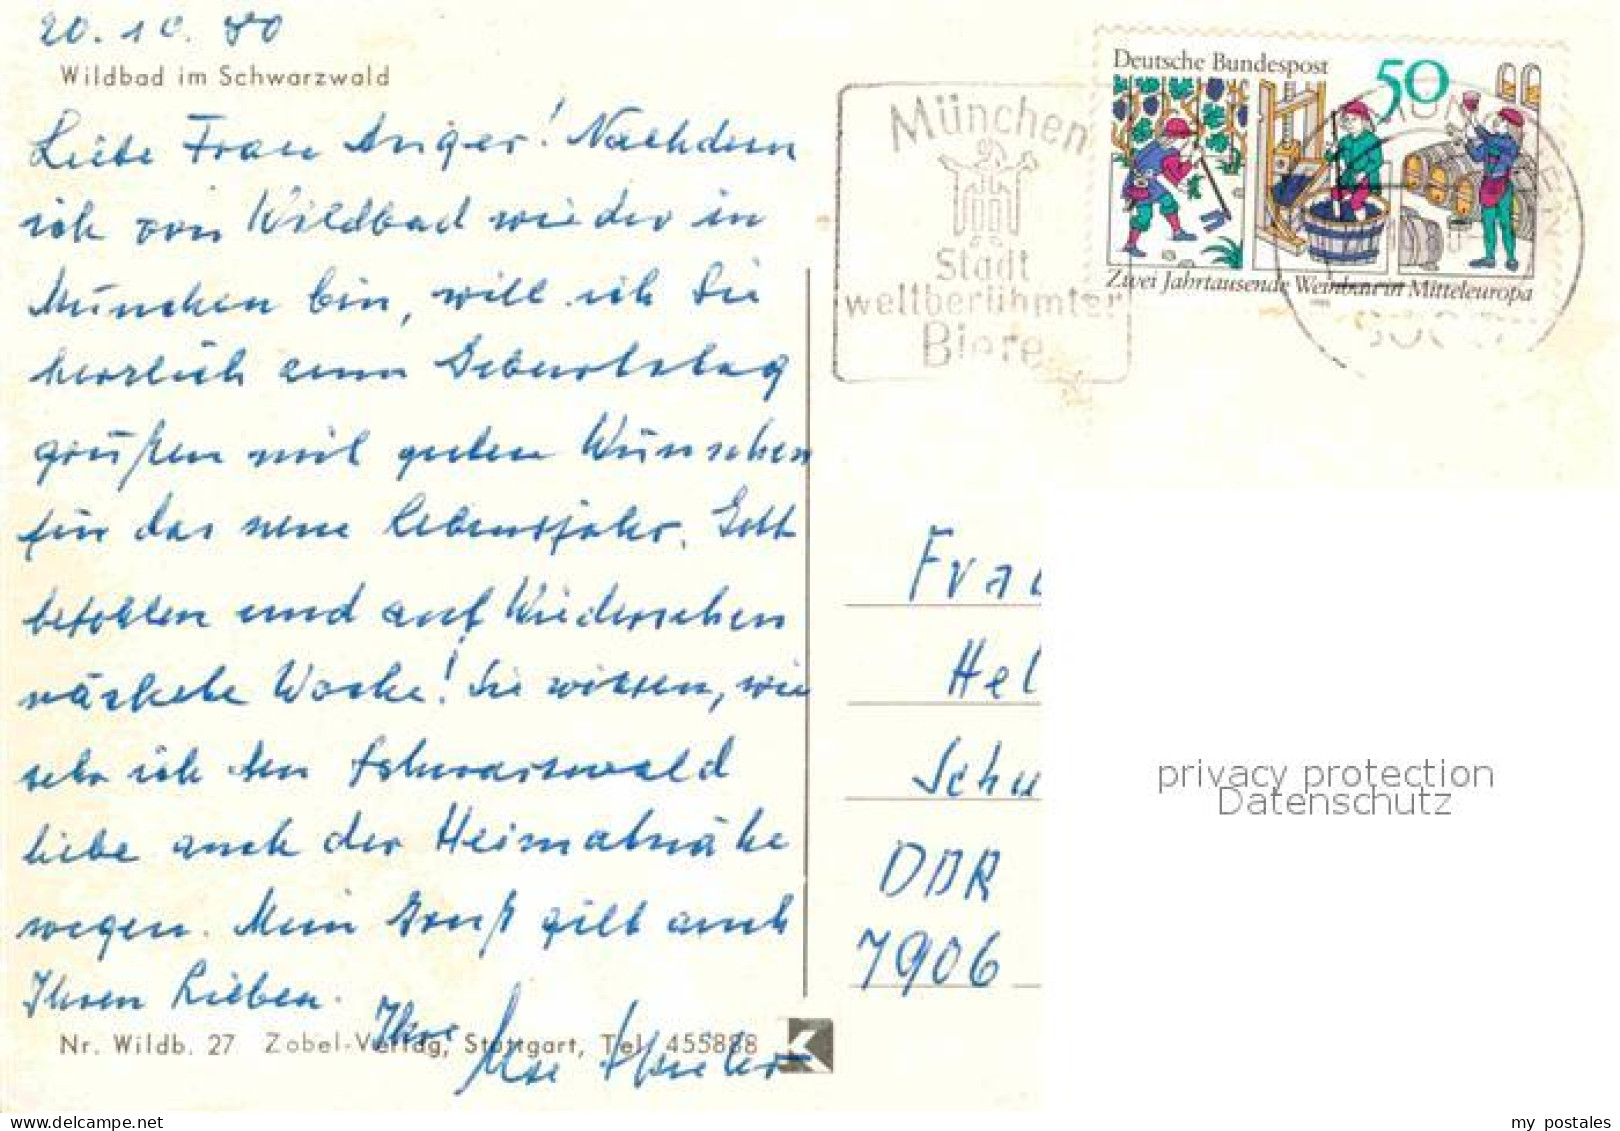 20. 10. 80
Wildbad im Schwarzwald
Liebe Frau Anger! Nachdem
ich von Wildbad wieder in
München bin, will ich Sie
herzlich zum Geburtstag
grüßen mit guten Wünschen
für das neue Lebensjahr. Gott
befohlen und auf Wiedersehen
nächste Woche! Sie wissen, wie
sehr ich den Schwarzwald
liebe auch der Heimatnähe
wegen. Mein Gruß gilt auch
Ihren Lieben.
Ihre
Nr. Wildb. 27 Zobel-Verlag, Stuttgart, Tel. 455888
K
München
Stadt
weltberühmter
Biere
Deutsche Bundespost
50
Zwei Jahrtausende Weinbau in Mitteleuropa
Frau
Hel
Schu
DDR
7906
privacy protection
Datenschutz
my postales